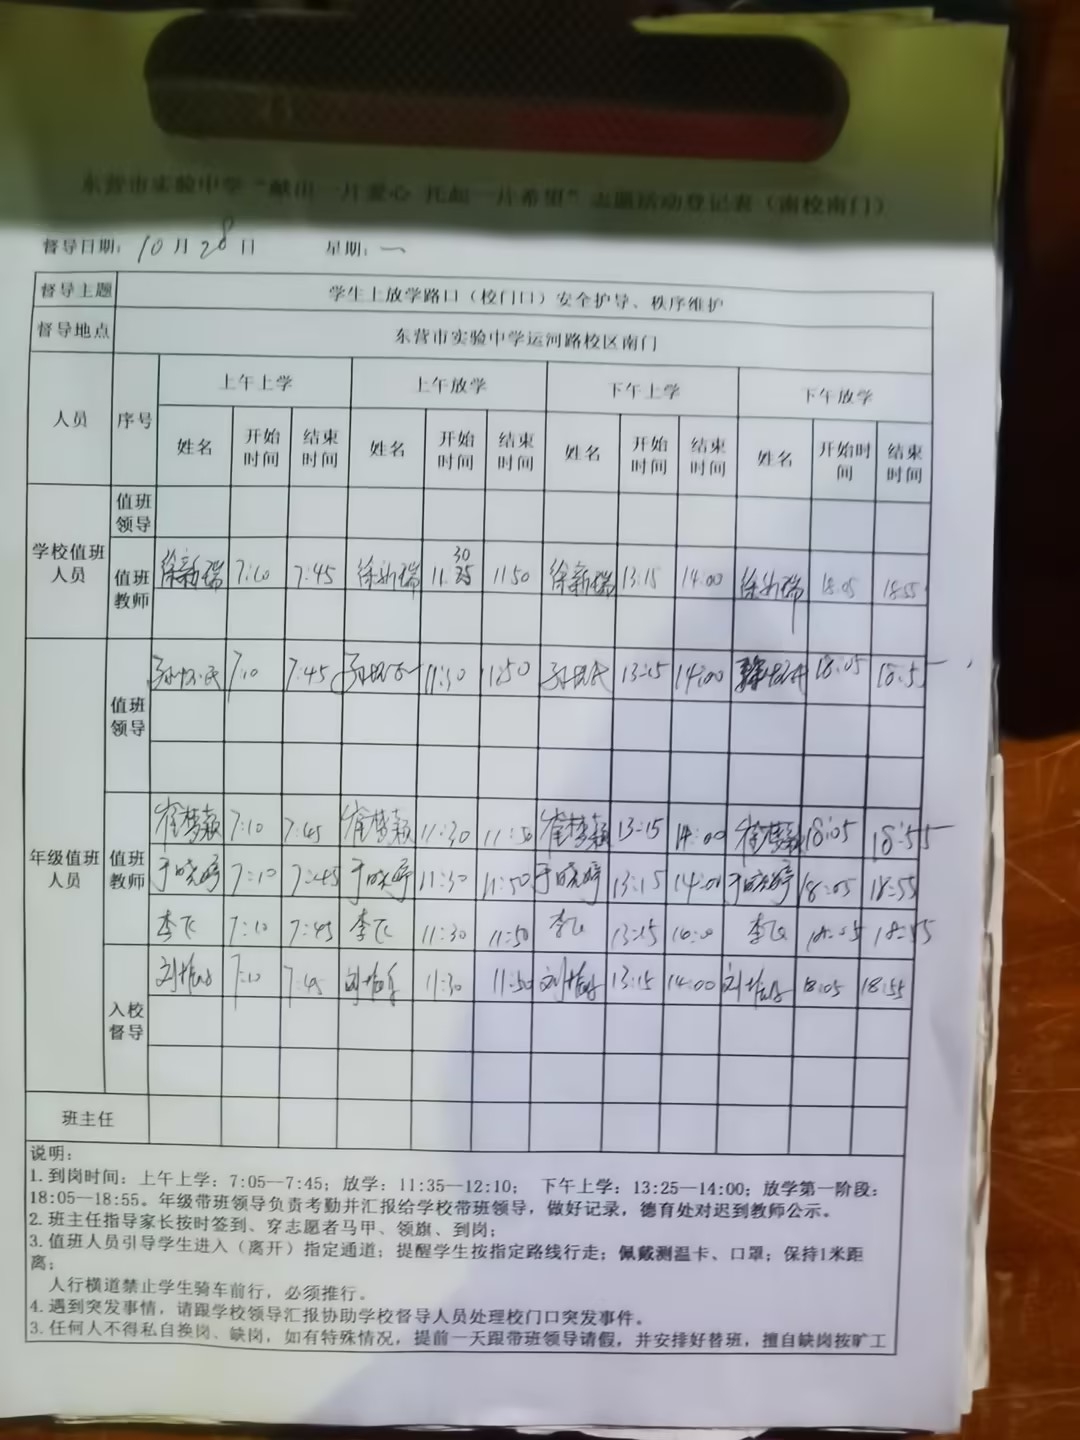 东营市实验中学“献出一片爱心 托起一片希望”志愿活动登记表（南校南门）
督导日期：10月28日 星期：一
督导主题 学生上放学路口（校门口）安全护导、秩序维护
督导地点 东营市实验中学运河路校区南门
人员 序号 上午上学 上午放学 下午上学 下午放学
姓名 开始时间 结束时间 姓名 开始时间 结束时间 姓名 开始时间 结束时间 姓名 开始时间 结束时间
学校值班人员 值班领导
值班教师 徐新瑞 7:10 7:45 徐新瑞 11:30 11:50 徐新瑞 13:15 14:00 徐新瑞 18:05 18:55
年级值班人员 值班领导 7:10 7:45 11:30 11:50 13:15 14:00 18:05 18:55
值班教师 崔梦颖 7:10 7:45 崔梦颖 11:30 11:50 崔梦颖 13:15 14:00 崔梦颖 18:05 18:55
于晓婷 7:10 7:45 于晓婷 11:30 11:50 于晓婷 13:15 14:00 于晓婷 18:05 18:55
李飞 7:10 7:45 李飞 11:30 11:50 李飞 13:15 14:00 李飞 18:05 18:55
入校督导 7:10 7:45 11:30 11:50 13:15 14:00 18:05 18:55
班主任
说明：
1. 到岗时间：上午上学：7:05—7:45；放学：11:35—12:10； 下午上学：13:25—14:00；放学第一阶段：
18:05—18:55。年级带班领导负责考勤并汇报给学校带班领导，做好记录，德育处对迟到教师公示。
2. 班主任指导家长按时签到、穿志愿者马甲、领旗、到岗；
3. 值班人员引导学生进入（离开）指定通道；提醒学生按指定路线行走；佩戴测温卡、口罩；保持1米距
离；
人行横道禁止学生骑车前行，必须推行。
4. 遇到突发事情，请跟学校领导汇报协助学校督导人员处理校门口突发事件。
3. 任何人不得私自换岗、缺岗，如有特殊情况，提前一天跟带班领导请假，并安排好替班，擅自缺岗按旷工